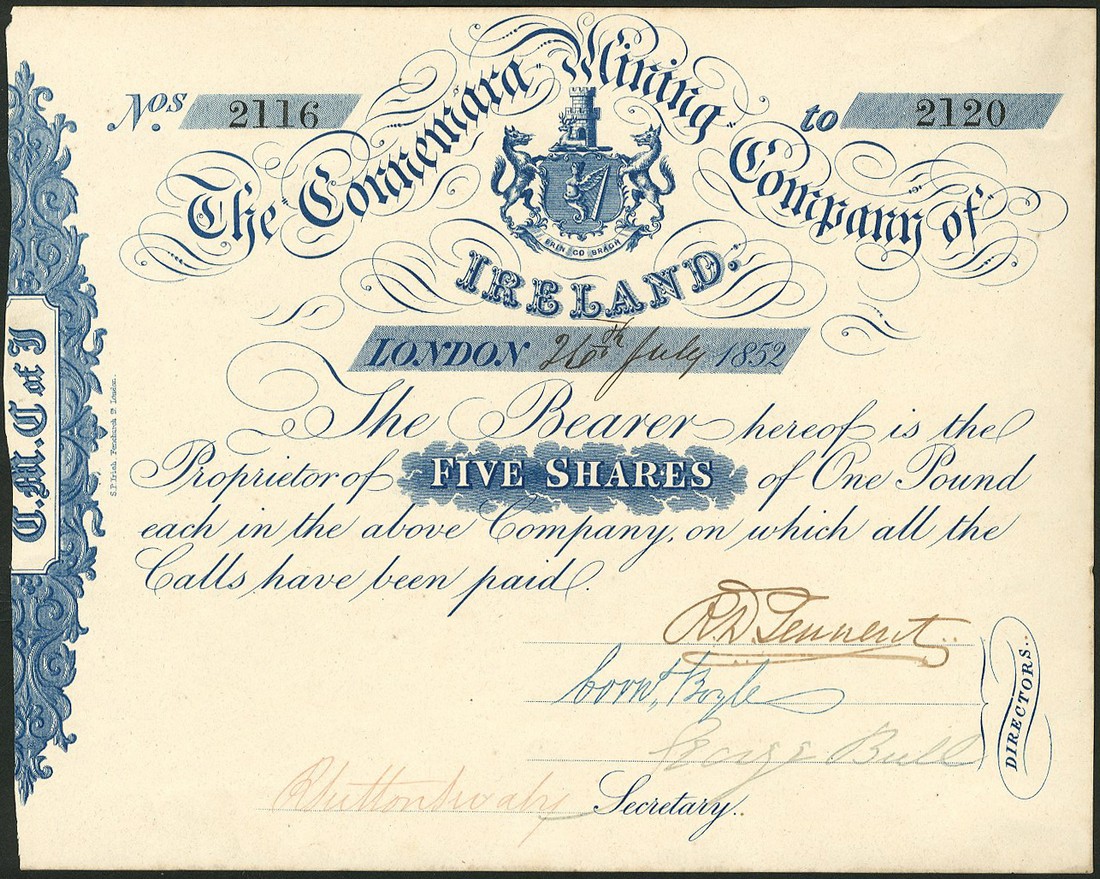 Nos 2116 to 2120
The Connemara Mining Company of
ERIN GO BRAGH
IRELAND.
LONDON 26th July 1852
The Bearer hereof is the
Proprietor of FIVE SHARES of One Pound
each in the above Company, on which all the
Calls have been paid.
R.D. Tennent
Corns. Boyle
George Bull
DIRECTORS.
Secretary.
C.M.C of I